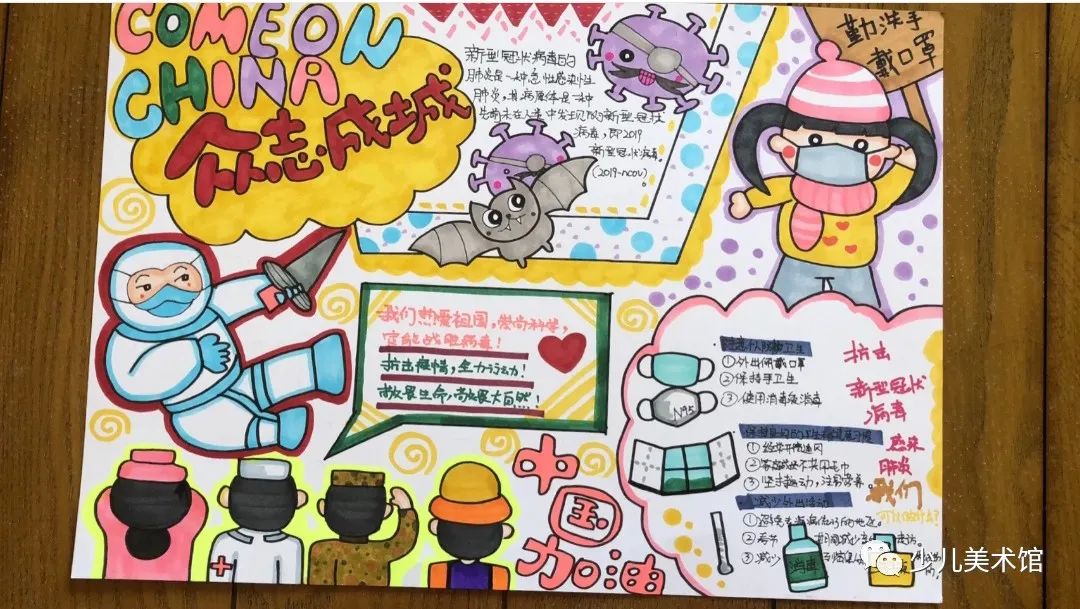 COME ON
CHINA
众志成城
新型冠状病毒的
肺炎是一种急性感染性
肺炎，其病原体是一种
先前未在人类中发现的新型冠状
病毒，即2019
新型冠状病毒。
(2019-nCoV)
勤洗手
戴口罩
我们热爱祖国，崇尚科学，
定能战胜病毒！
抗击疫情，全力行动！
敬畏生命，敬畏大自然！
中
国
加油
个人防护卫生
①外出佩戴口罩
②保持手卫生
③使用消毒液消毒
N95
抗击
新型冠状
病毒
感染
肺炎
我们
可以做什么？
①经常开窗通风
不共用毛巾
③坚持运动，注意营养。
减少外出活动
①避免去
②春节
③减少
消毒
少儿美术馆